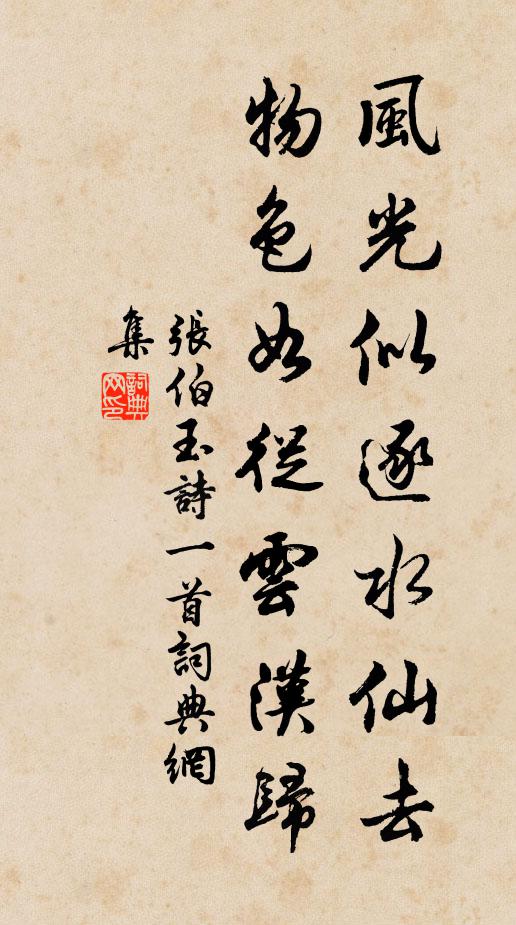 風光似逐水仙去
物色如從雲漢歸
張伯玉詩一首詞典網
集
詞典
网印